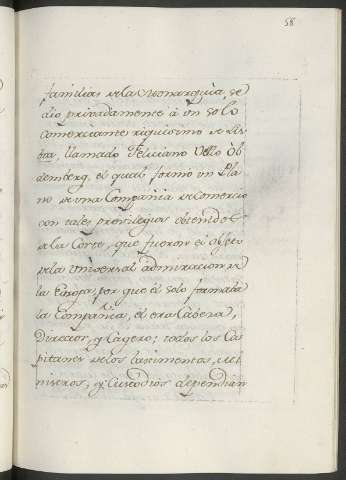 58
familias de la Monarquia, se
dio privadamente à un solo
comerciante riquisimo de Lis-
boa, llamado Feliciano Vello Ol-
demberg, el qual formò un Pla-
no de una Compañia de Comercio
con tales privilegios obtenidos
de la Corte, que fueron el Objeto
de la Universal admiracion de
la Europa, por que el solo formaba
la Compañia, el era Cabeza,
Director, y Cagero; todos los Ca-
pitanes de los bastimentos, Mi-
nistros, y Custodios dependian